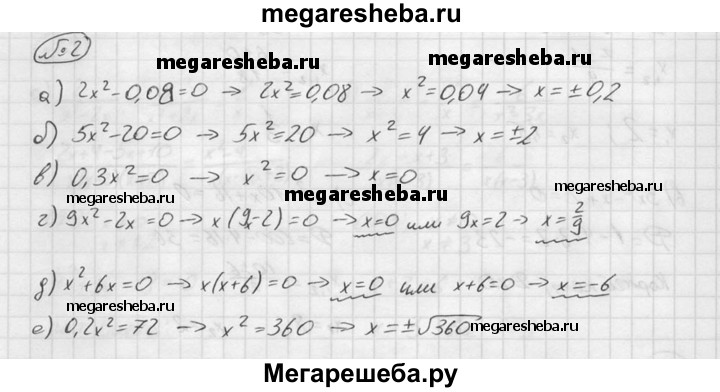 megaresheba.ru
№2
megaresheba.ru megaresheba.ru
а) 2x²-0,08=0 → 2x²=0,08 → x²=0,04 → x=±0,2
б) 5x²-20=0 → 5x²=20 → x²=4 → x=±2
в) 0,3x²=0 → x²=0 → x=0
megaresheba.ru megaresheba.ru
г) 9x²-2x=0 → x(9x-2)=0 → x=0 или 9x=2 → x=2/9
д) x²+6x=0 → x(x+6)=0 → x=0 или x+6=0 → x=-6
megaresheba.ru
е) 0,2x²=72 → x²=360 → x=±√360
megaresheba.ru
Мегарешеба.ру